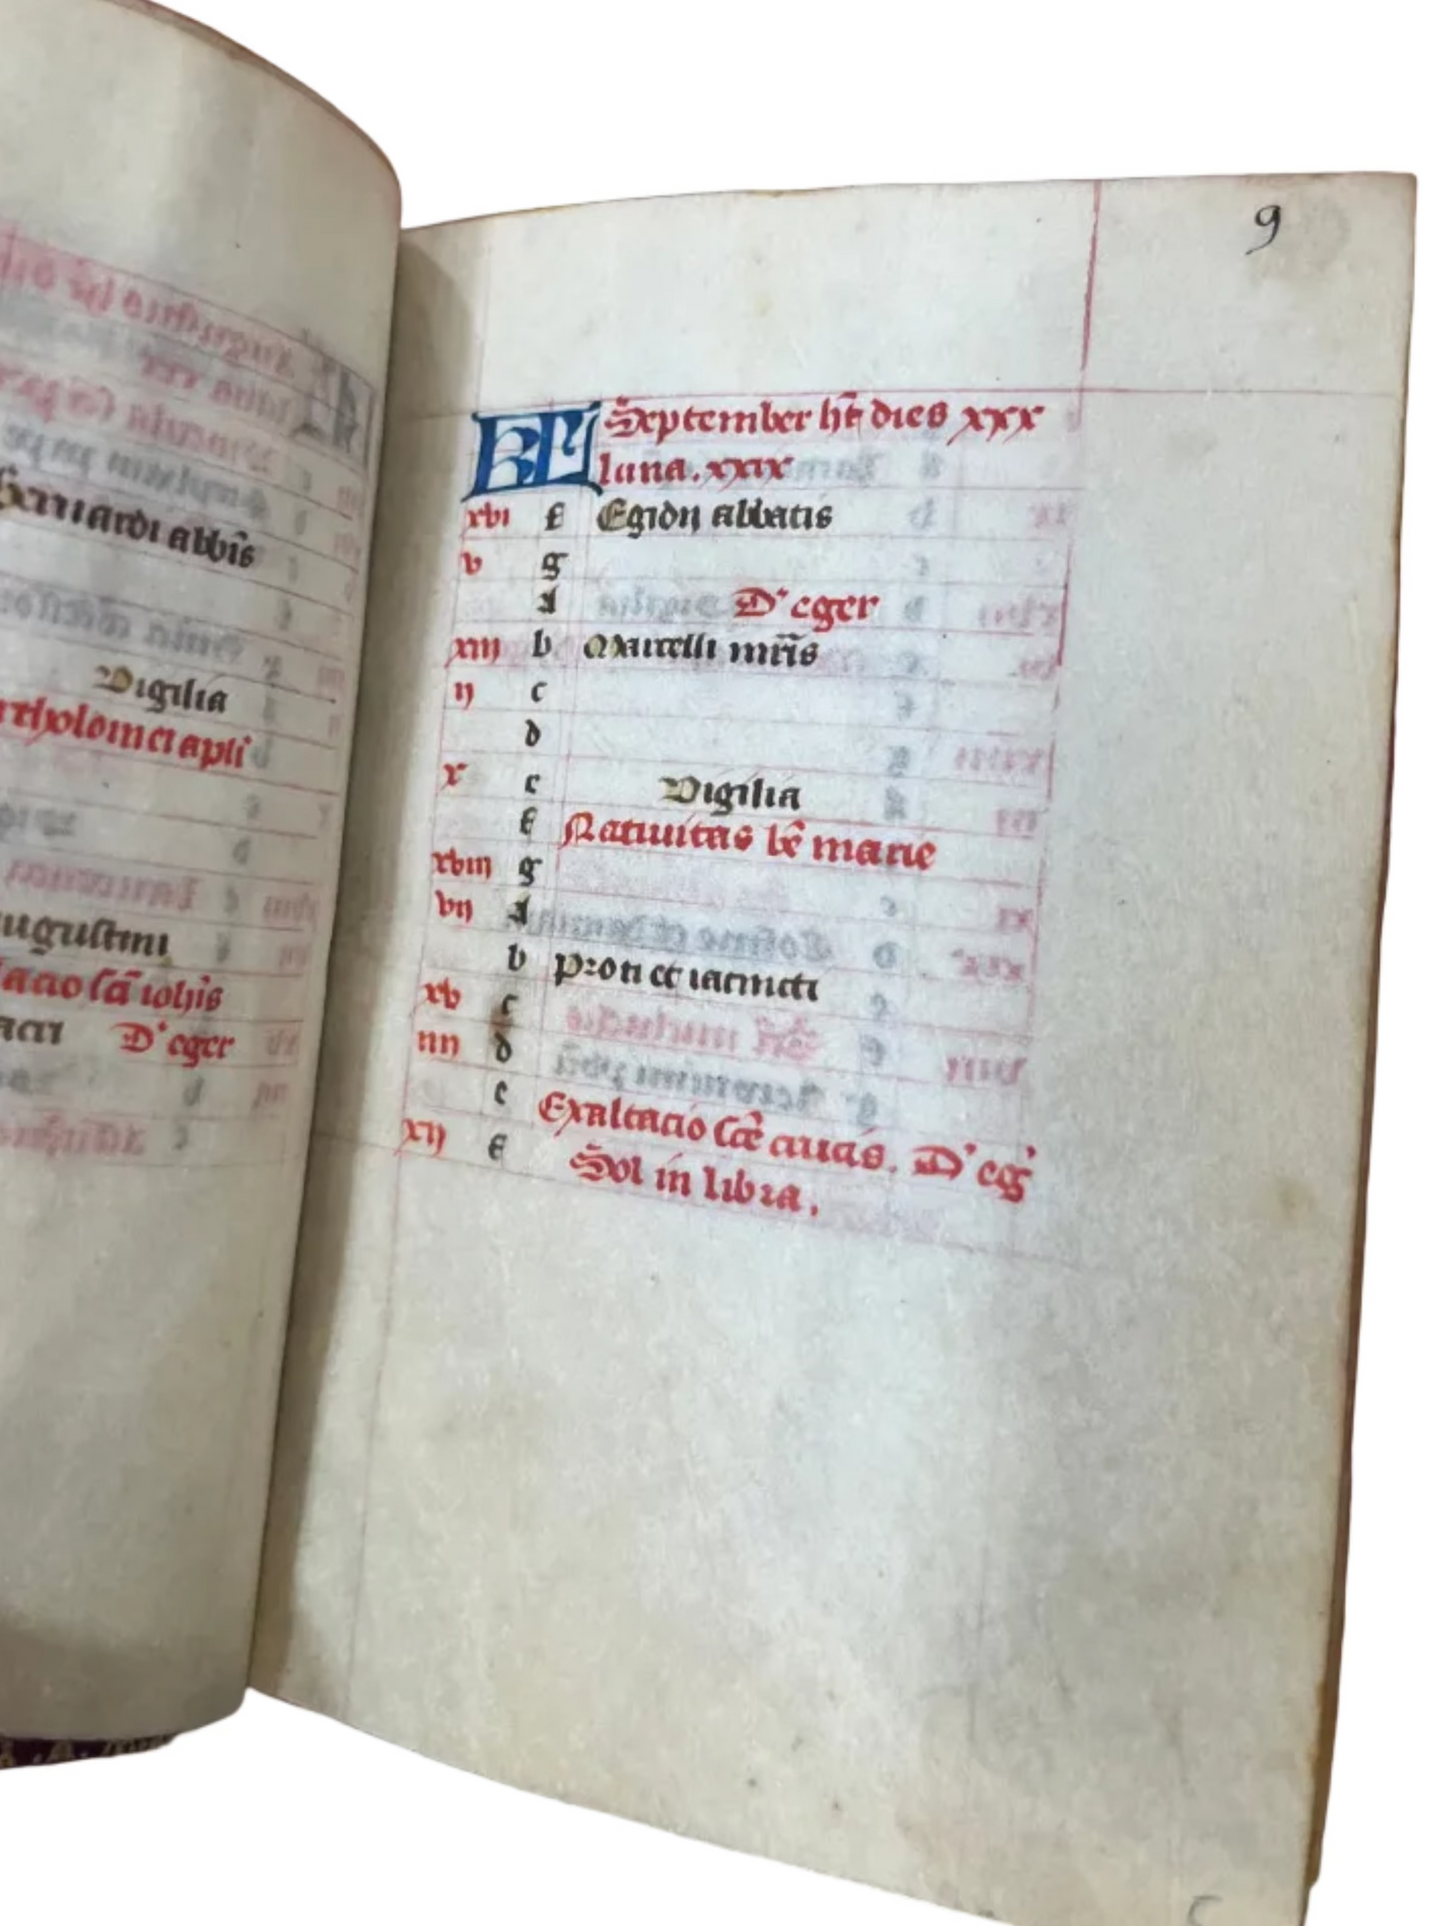 Bernardi abb̃is
Vigilia
rtholomei apl'i
ugustini
lacio sc̃i ioh̃is
D' eger
9
KL September h̃t dies xxx
luna. xxix
xvi f Egidij abbatis
v g
A D' eger
xiij b Marcelli mr̃is
ij c
d
x e Vigilia
f Natiuitas be᷑ marie
xviij g
vij A
b Proti et iacincti
xv c
iiij d
e Exaltacio sc̃e crucis. D' eg'
xij f Sol in libra.